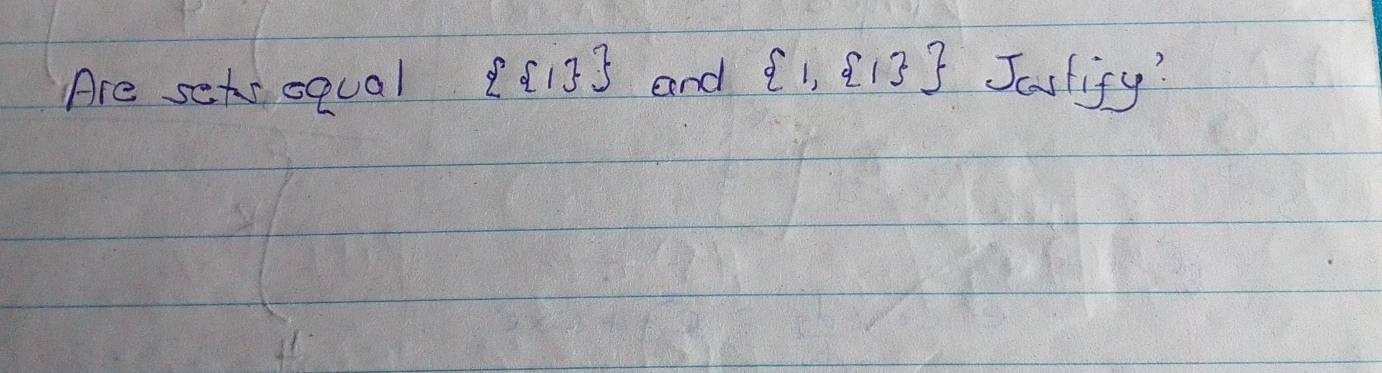 Are sets equal {{1}} and {1, {1}} Justify?